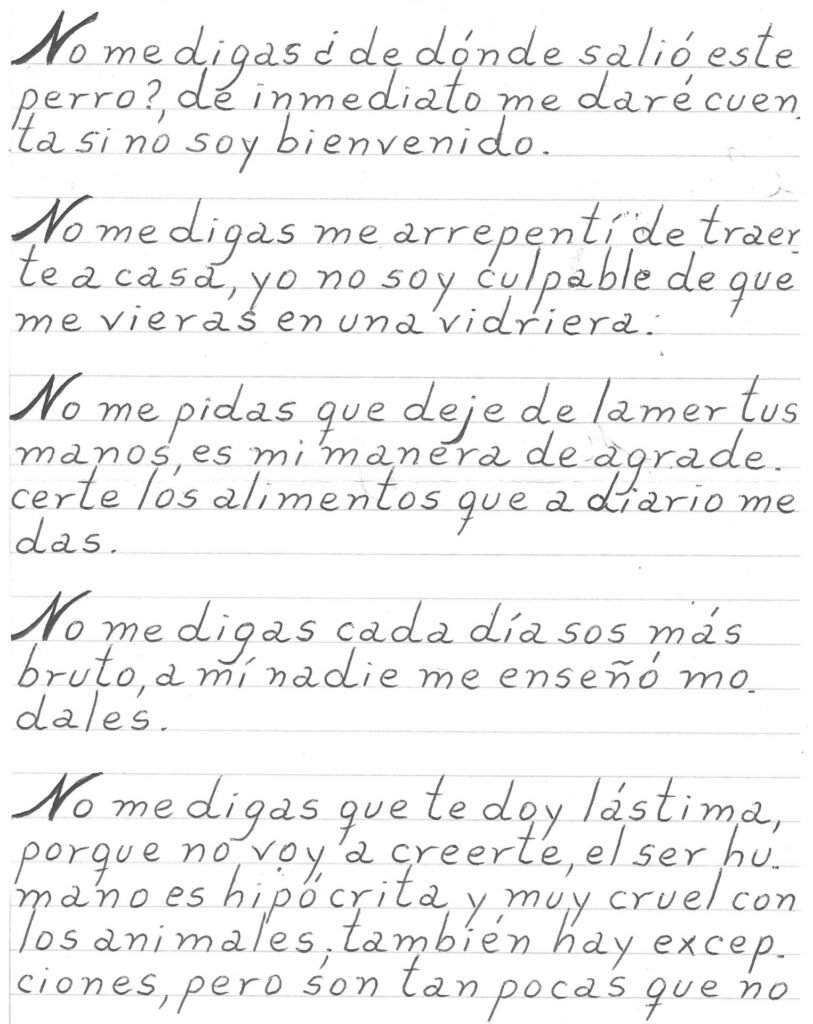 No me digas ¿ de dónde salió este
perro?, de inmediato me daré cuen.
ta si no soy bienvenido.
No me digas me arrepentí de traer.
te a casa, yo no soy culpable de que
me vieras en una vidriera.
No me pidas que deje de lamer tus
manos, es mi manera de agrade.
certe los alimentos que a diario me
das.
No me digas cada día sos más
bruto, a mí nadie me enseñó mo.
dales.
No me digas que te doy lástima,
porque no voy a creerte, el ser hu.
mano es hipócrita y muy cruel con
los animales, también hay excep.
ciones, pero son tan pocas que no